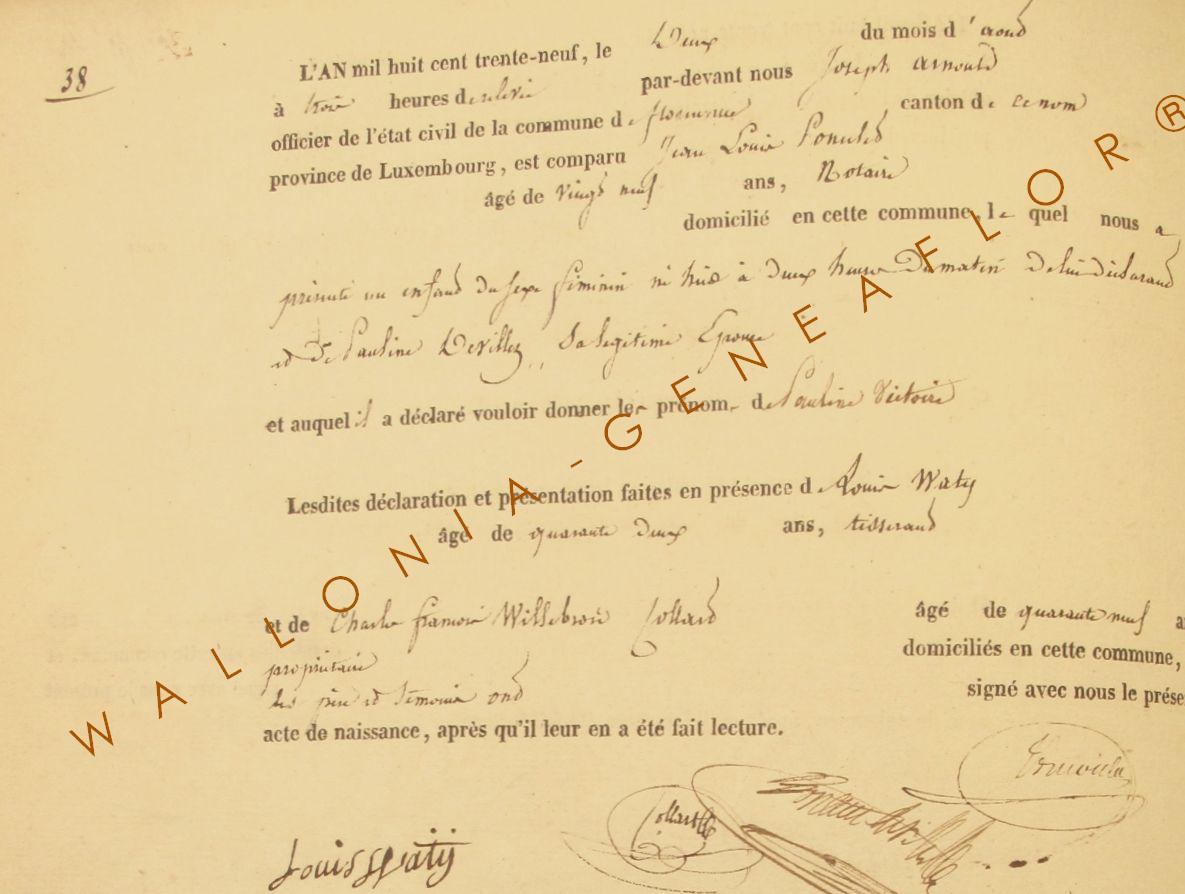 38
L'AN mil huit cent trente-neuf, le Deux du mois d'aout
à trois heures de relevée par-devant nous Joseph Arnould
officier de l'état civil de la commune de canton de ce nom
province de Luxembourg, est comparu Jean Louis
âgé de vingt neuf ans, Notaire
domicilié en cette commune, le quel nous a
présenté un enfant du sexe féminin né hier à deux heures Du matin De lui déclarant
et De Pauline Devillez, Sa legitime Epouse
et auquel il a déclaré vouloir donner les prénoms de Pauline Victoire
Lesdites déclaration et présentation faites en présence de Louis Waty
âgé de quarante deux ans, tisserand
et de Charles françois Willebrord Collard âgé de quarante neuf a
propriétaire domiciliés en cette commune,
les père et témoins ont signé avec nous le prése
acte de naissance, après qu'il leur en a été fait lecture.
Louis Waty
WALLONIA-GENEAFLOR®